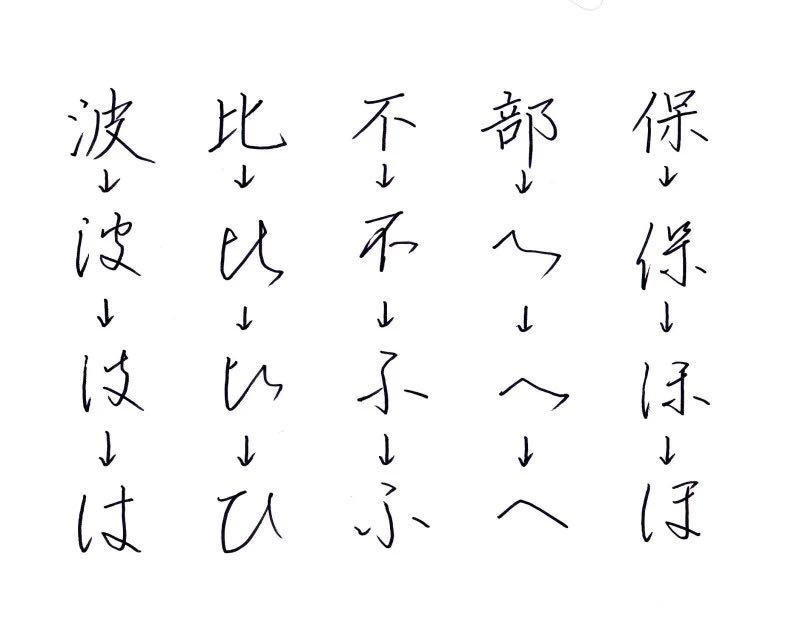 波 比 不 部 保
↓ ↓ ↓ ↓ ↓
波 比 不 へ 保
↓ ↓ ↓ ↓ ↓
は ひ ふ へ ほ
↓ ↓ ↓ ↓ ↓
は ひ ふ へ ほ